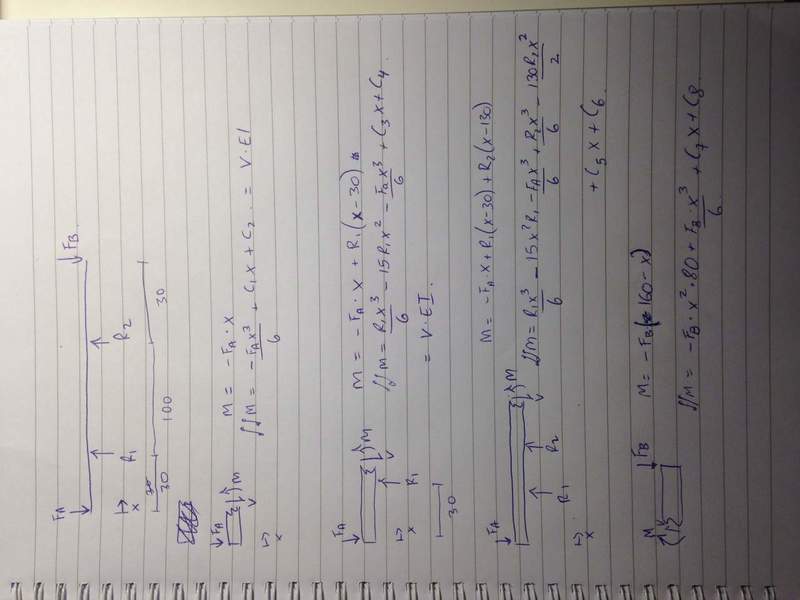 F_A F_B
R_1 R_2
x
30 100 30
30
F_A M V x
M = -F_A · x
∬M = -F_A x³/6 + C_1 x + C_2 = V·EI
F_A R_1 M V x
30
M = -F_A · x + R_1 (x-30)
∬M = R_1 x³/6 - 15R_1 x² - F_A x³/6 + C_3 x + C_4
= V·EI
F_A R_1 R_2 M V x
M = -F_A · x + R_1 (x-30) + R_2 (x-130)
∬M = R_1 x³/6 - 15x² R_1 - F_A x³/6 + R_2 x³/6 - 130R_2 x²/2
+ C_5 x + C_6
M V F_B
M = -F_B (160-x)
∬M = -F_B · x² · 80 + F_B · x³/6 + C_7 x + C_8